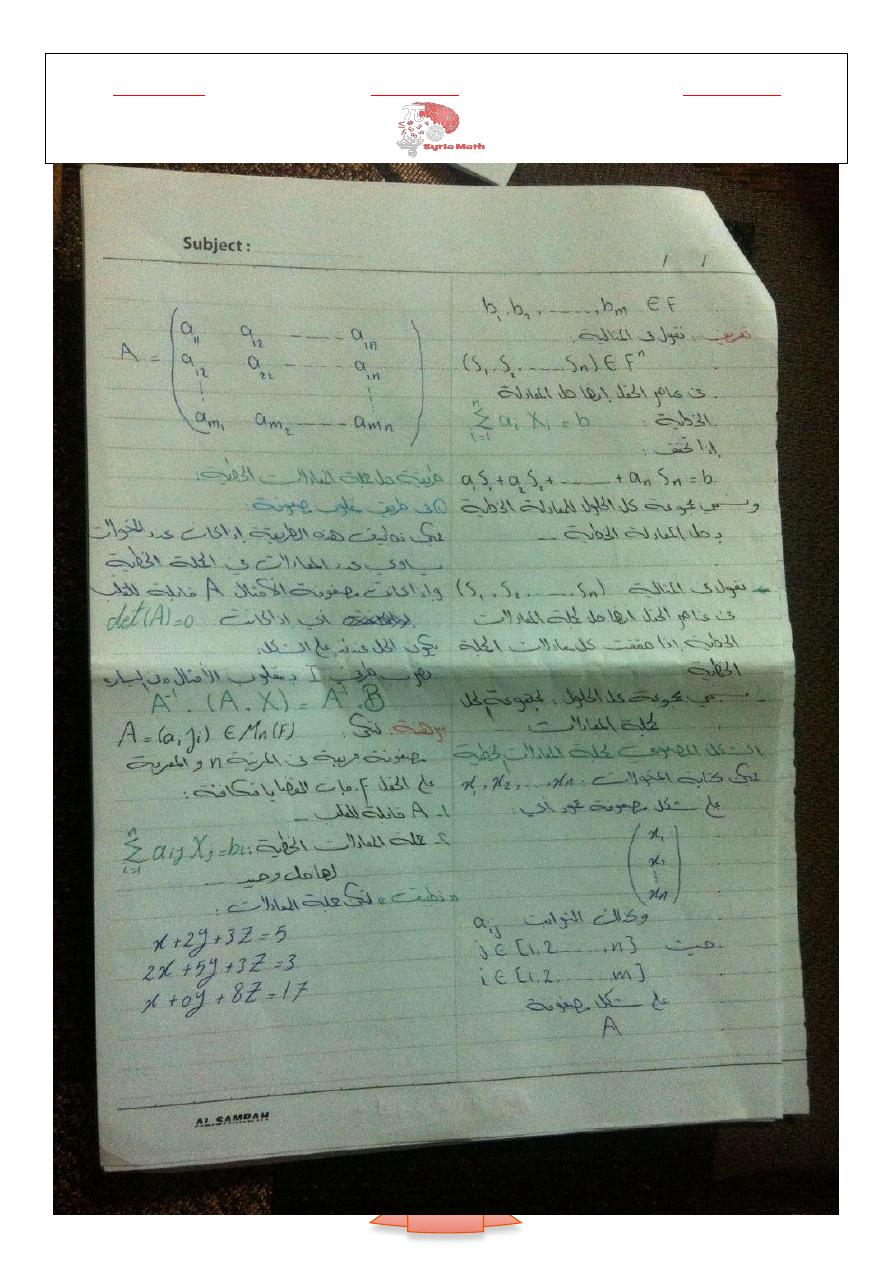 Syria Math
Subject :
/ /
b₁, b₂, ......, bₘ ∈ F
تعريف: نقول في المتتالية
(S₁, S₂, ..... Sₙ) ∈ Fⁿ
من عناصر الحقل إنها حل للمعادلة
الخطية: ∑ⁿᵢ₌₁ aᵢ Xᵢ = b
إذا تحقق:
a₁S₁ + a₂S₂ + ...... + aₙSₙ = b
وتسمى مجموعة كل الحلول للمعادلة الخطية
بحل المعادلة الخطية ...
نقول في المتتالية (S₁, S₂, ...... Sₙ)
من عناصر الحقل إنها حل لجملة المعادلات
الخطية إذا حققت كل معادلات الجملة
الخطية
تسمى مجموعة كل الحلول: مجموعة حل
جملة المعادلات
الشكل المصفوفي لجملة المعادلات الخطية
يمكن كتابة المتحولات x₁, x₂, ..., xₙ
على شكل مصفوفة عمود أي:
( x₁
x₂
⋮
xₙ )
وكذلك الثوابت aᵢⱼ
حيث j ∈ {1, 2, ......, n}
i ∈ {1, 2, ......, m}
على شكل مصفوفة
A
A = ( a₁₁ a₁₂ ------ a₁ₙ
a₁₂ a₂₂ ------ a₂ₙ
⋮ ⋮
aₘ₁ aₘ₂ ---- aₘₙ )
طريقة حل جملة المعادلات الخطية:
① عن طريق مقلوب مصفوفة:
يمكن توظيف هذه الطريقة إذا كانت عدد المتحولات
يساوي عدد المعادلات في الجملة الخطية
وإذا كانت مصفوفة الأمثال A قابلة للقلب
أي إذا كانت: det(A)=0
يكون الحل عندئذ على الشكل
نضرب طرفي I بمقلوب الأمثال من اليسار
A⁻¹ . (A . X) = A⁻¹ . B
مبرهنة: لتكن A = (aᵢⱼᵢ) ∈ Mₙ(F)
مصفوفة مربعة من المرتبة n والمعرفة
على الحقل F فإن القضايا متكافئة:
1- A قابلة للقلب ...
2- جملة المعادلات الخطية: ∑ⁿᵢ₌₁ aᵢⱼ Xⱼ = bᵢ
لها حل وحيد ...
"تطبيق" لتكن جملة المعادلات:
x + 2y + 3Z = 5
2x + 5y + 3Z = 3
x + 0y + 8Z = 17
AL.SAMRAH